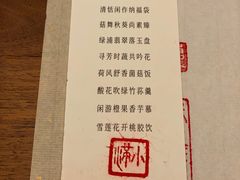 清恬闲作纳福袋
菇舞秋葵尚素臻
绿浦翡翠落玉盘
寻芳时蔬共吟花
荷风舒香菌菇饭
酸花吹绿竹荪羹
闲游橙果香芋慕
雪莲花开桃胶饮
小满